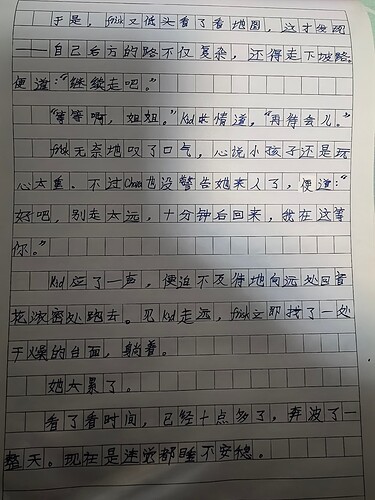 于是，frisk又低头看了看地图，这才发现
——自己后方的路不仅复杂，还得走下坡路。
便道：“继续走吧。”
“等等啊，姐姐。”Kid求情道，“再待会儿。”
frisk无奈地叹了口气，心说小孩子还是玩
心太重。不过Chara也没警告她来人了，便道：“
好吧，别走太远，十分钟后回来，我在这等
你。”
Kid应了一声，便迫不及待地向远处回音
花浓密处跑去。见Kid走远，frisk立即找了一处
干燥的台面，躺着。
她太累了。
看了看时间，已经十点多了，奔波了一
整天。现在是连觉都睡不安稳。